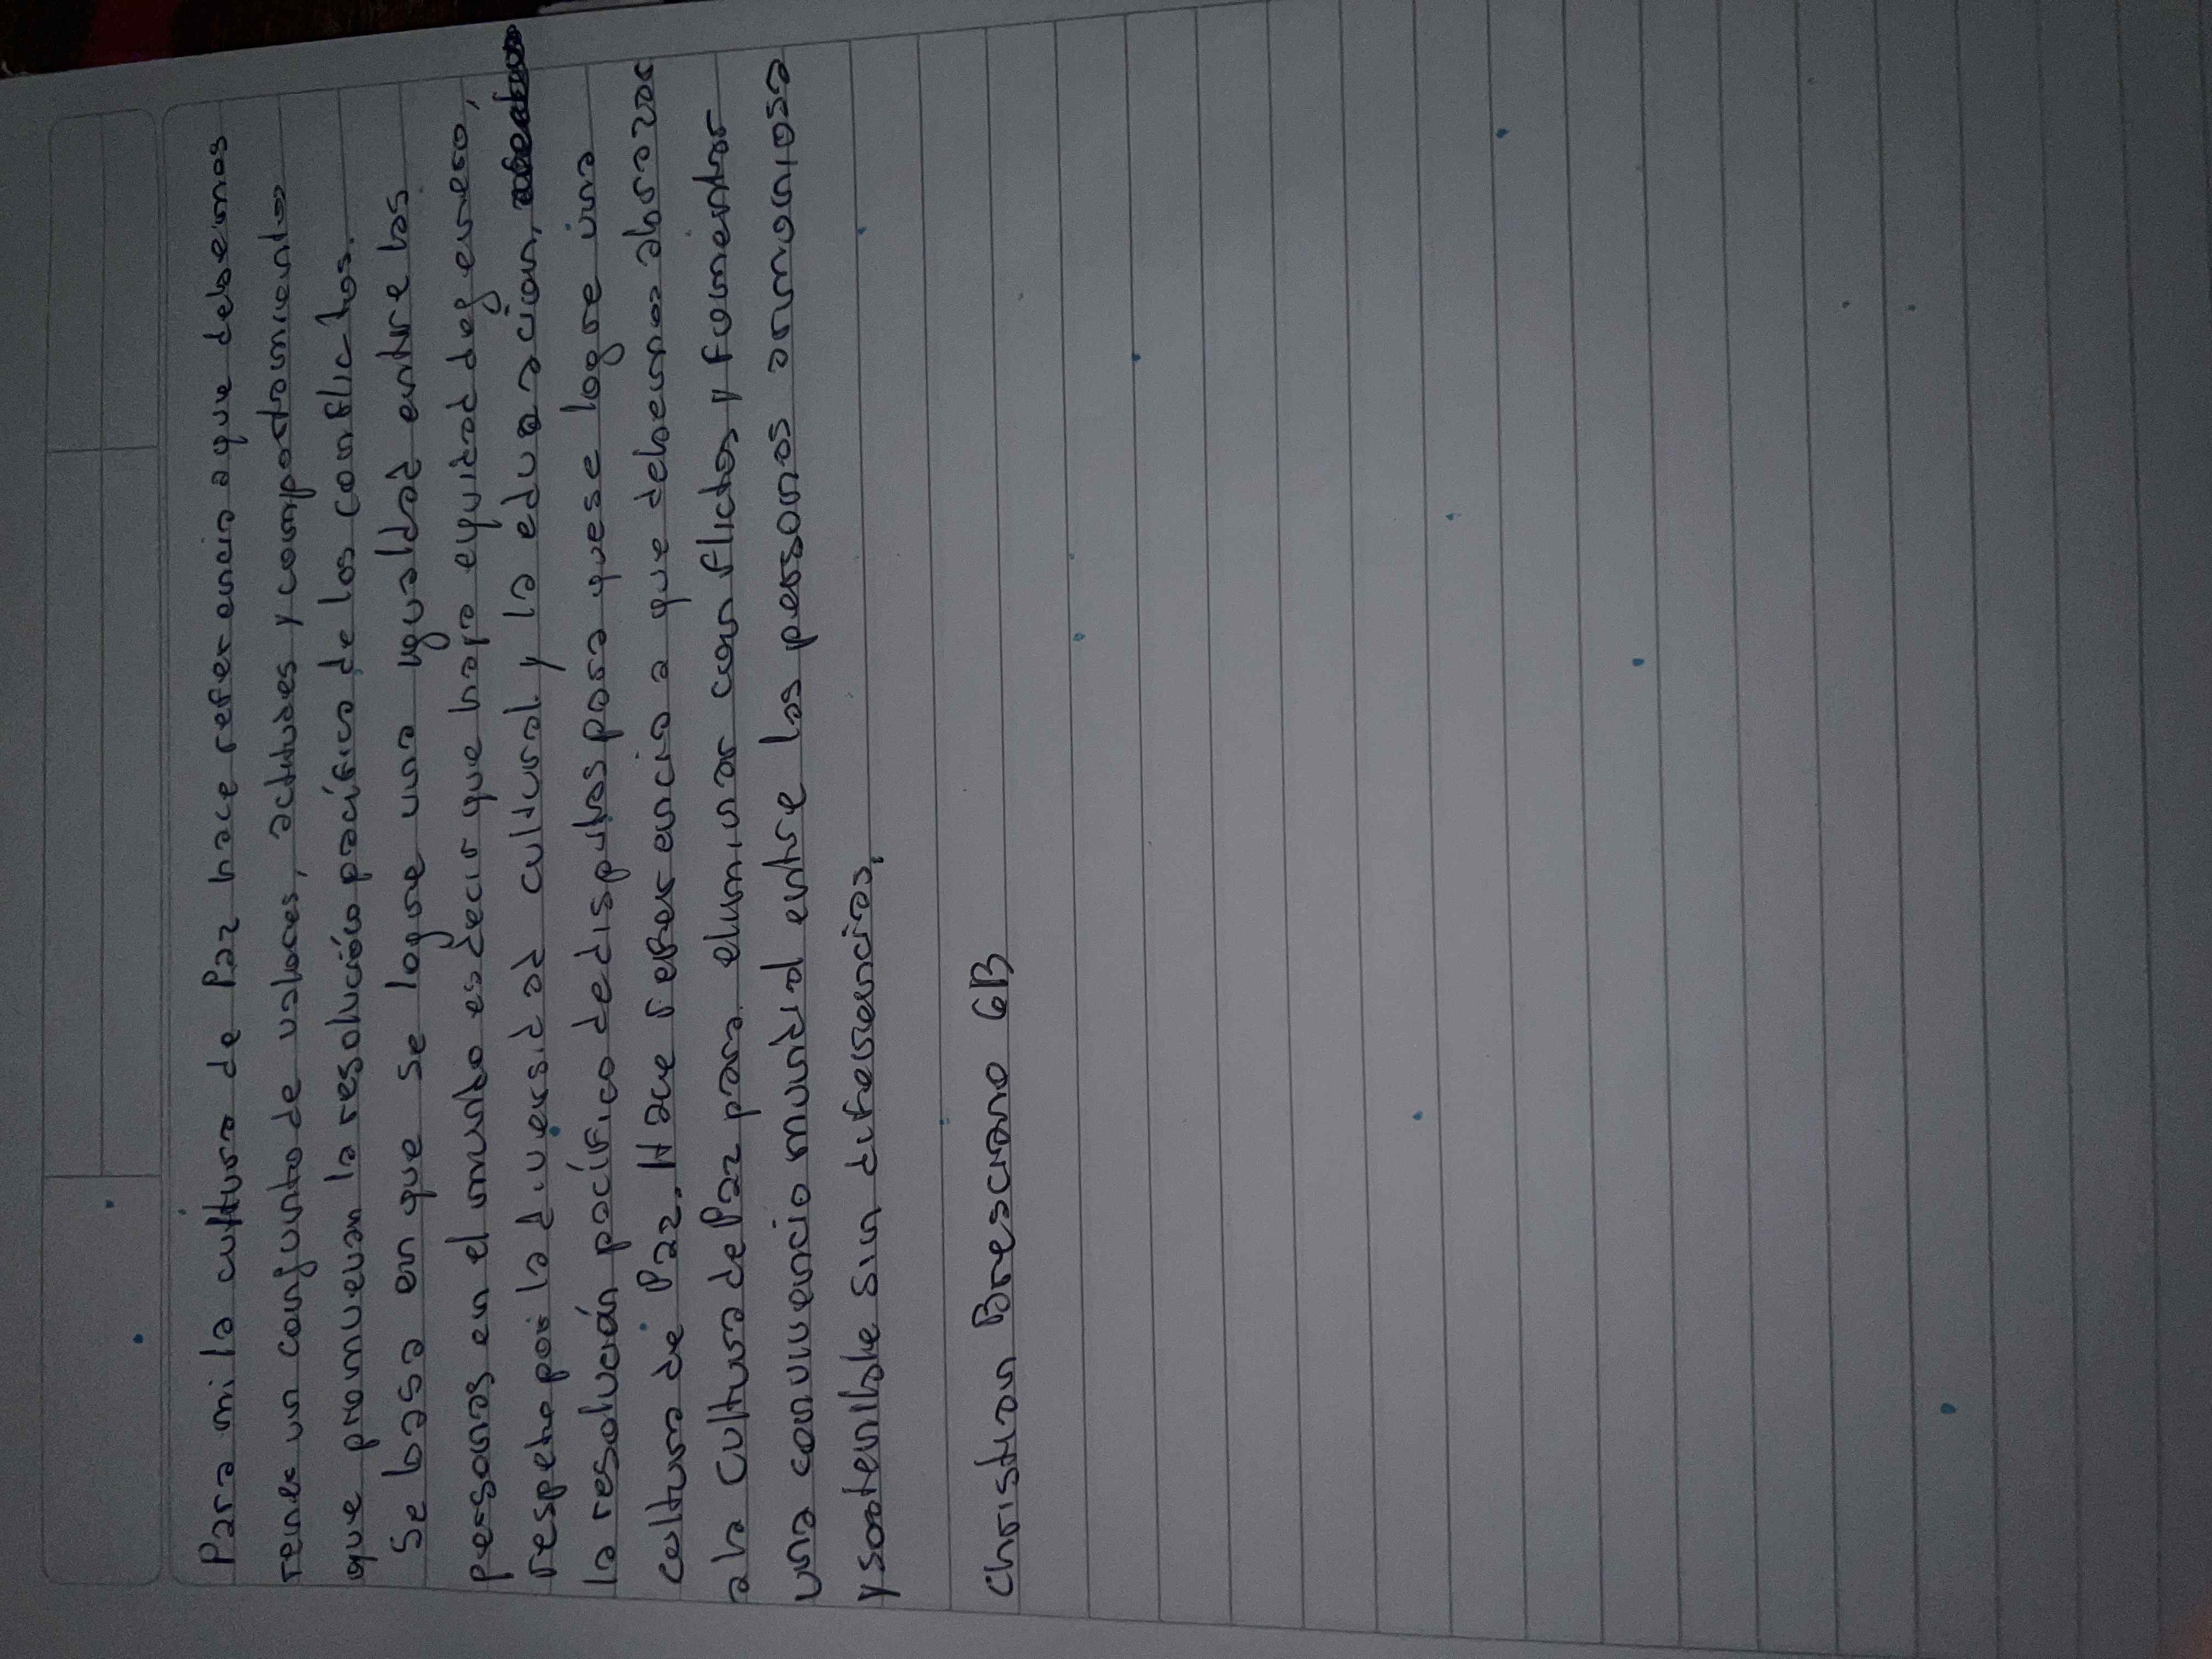 Para mi la cultura de Paz hace referencia a que debemos
tener un conjunto de valores, actitudes y comportamientos
que promuevan la resolución pacífica de los conflictos.
Se basa en que se logre una igualdad entre las
personas en el mundo es decir que haya equidad de genero,
respeto por la diversidad cultural y la educacion,
la resolución pacífico de disputas para que se logre una
cultura de Paz. Hace referencia a que debemos abrazar
a la cultura de Paz para eliminar conflictos y fomentar
una convivencia mundial entre las personas armoniosa
y sostenible sin diferencias.
Christian Bresciano 6B